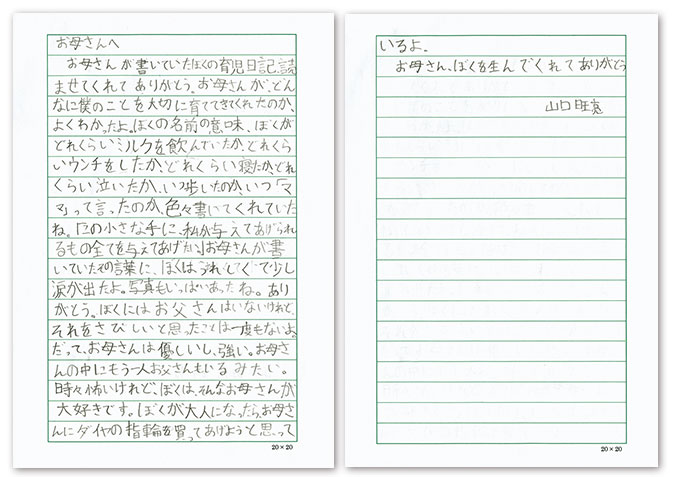 お母さんへ
お母さんが書いていたぼくの育児日記、読
ませてくれてありがとう。お母さんが、どん
なに僕のことを大切に育ててきてくれたのか、
よくわかったよ。ぼくの名前の意味、ぼくが
どれくらいミルクを飲んでいたか、どれくら
いウンチをしたか、どれくらい寝たか、どれ
くらい泣いたか、いつ歩いたのか、いつ「マ
マ」って言ったのか、色々書いてくれていた
ね。「この小さな手に、私が与えてあげられ
るもの全てを与えてあげたい」お母さんが書
いていたその言葉に、ぼくはうれしくて少し
涙が出たよ。写真もいっぱいあったね。あり
がとう。ぼくにはお父さんはいないけれど、
それをさびしいと思ったことは一度もないよ。
だって、お母さんは優しいし、強い。お母さ
んの中にもう一人お父さんもいるみたい。
時々怖いけれど、ぼくは、そんなお母さんが
大好きです。ぼくが大人になったら、お母さ
んにダイヤの指輪を買ってあげようと思って
20×20
いるよ。
お母さん、ぼくを生んでくれてありがとう
山口
20×20